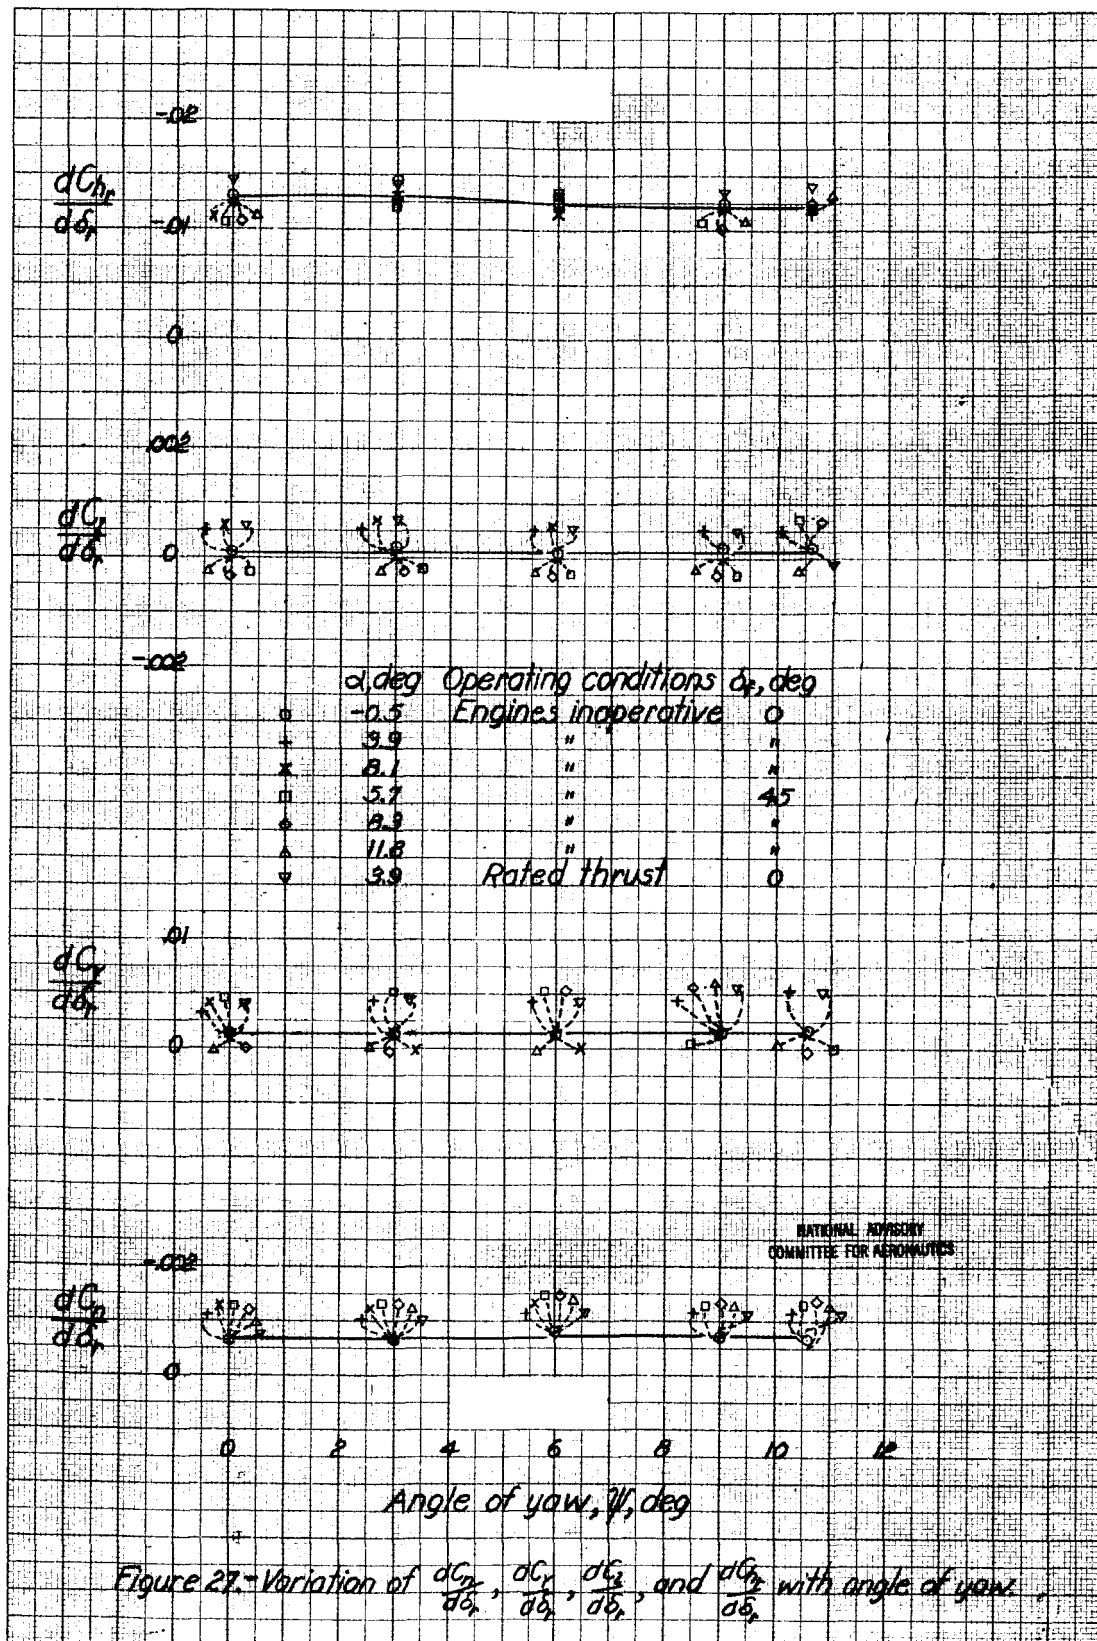 -.02
dC_hr
dδr
-.01
0
.002
dC_l
dδr
0
-.002
α, deg Operating conditions δf, deg
-0.5 Engines inoperative 0
3.9 " "
8.1 " "
5.7 " 45
8.3 " "
11.8 " "
3.9 Rated thrust 0
.01
dC_Y
dδr
0
NATIONAL ADVISORY
COMMITTEE FOR AERONAUTICS
-.002
dC_n
dδr
0
0 2 4 6 8 10 12
Angle of yaw, ψ, deg
Figure 27.- Variation of dC_n/dδr, dC_Y/dδr, dC_l/dδr, and dC_hr/dδr with angle of yaw.